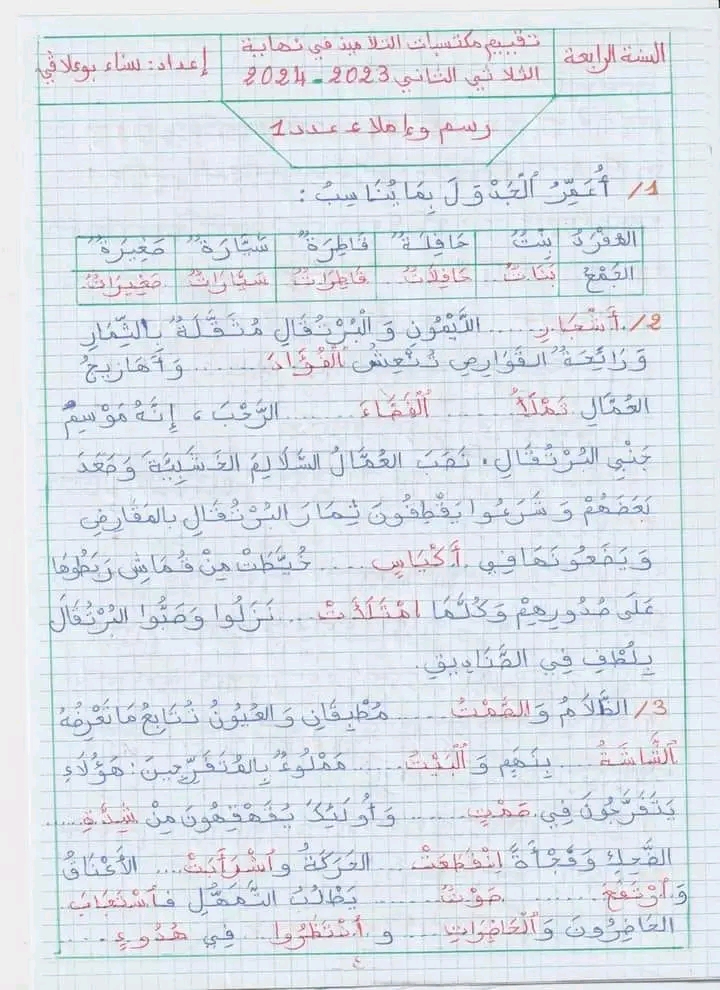 السنة الرابعة
تقييم مكتسبات التلاميذ في نهاية
الثلاثي الثاني 2023-2024
إعداد: سناء بوعلاقي
رسم وإملاء عدد 1
1/ أُعَمِّرُ ٱلْجَدْوَلَ بِمَا يُنَاسِبُ :
المُفْرَدُ بِنْتٌ حَافِلَةٌ قَاطِرَةٌ سَيَّارَةٌ صَغِيرَةٌ
الجَمْعُ بَنَاتٌ... حَافِلَاتٌ.. قَاطِرَاتٌ سَيَّارَاتٌ صَغِيرَاتٌ
2/ أَشْجَارُ..... اللَّيْمُونِ وَ الْبُرْتُقَالِ مُثْقَلَةٌ بِالثِّمَارِ
وَ رَائِحَةُ القَوَارِصِ تُنْعِشُ الْفُؤَادَ........ وَ أَهَازِيجُ
العُمَّالِ تَمْلَأُ ....... ٱلْفَضَاءَ....... الرَّحْبَ، إِنَّهُ مَوْسِمُ
جَنْيِ البُرْتُقَالِ. نَصَبَ العُمَّالُ السَّلَالِيمَ الخَشَبِيَّةَ وَ صَعَدَ
بَعْضُهُمْ وَ شَرَعُوا يَقْطِفُونَ ثِمَارَ البُرْتُقَالِ بِالمَقَارِضِ
وَ يَضَعُونَهَا فِي أَكْيَاسٍ ..... خُيِّطَتْ مِنْ قُمَاشٍ رَبَطُوهَا
عَلَى صُدُورِهِمْ وَ كُلَّمَا امْتَلَأَتْ... نَزَلُوا وَ صَبُّوا البُرْتُقَالَ
بِلُطْفٍ فِي الصَّنَادِيقِ.
3/ الظَّلَامُ وَ الصَّمْتُ...... مُطْبِقَانِ وَ العُيُونُ تُتَابِعُ مَا تَعْرِضُهُ
ٱلشَّاشَةُ..... بِنَهَمٍ وَ ٱلْبَيْتُ..... مَمْلُوءٌ بِالمُتَفَرِّجِينَ: هَؤُلَاءِ
يَتَفَرَّجُونَ فِي صَمْتٍ....... وَ أُولَئِكَ يُقَهْقِهُونَ مِنْ شِدَّةِ.....
الضَّحِكِ وَ فَجْأَةً اِنْقَطَعَتْ... الحَرَكَةُ وَ اشْرَأَبَّتْ.... الأَعْنَاقُ
وَ ٱرْتَفَعَ......... صَوْتٌ...... يَطْلُبُ التَّمَهُّلَ فَٱسْتَجَابَ
الحَاضِرُونَ وَ ٱلْحَاضِرَاتِ.... وَ ٱنْتَظَرُوا .. فِي هُدُوءٍ....